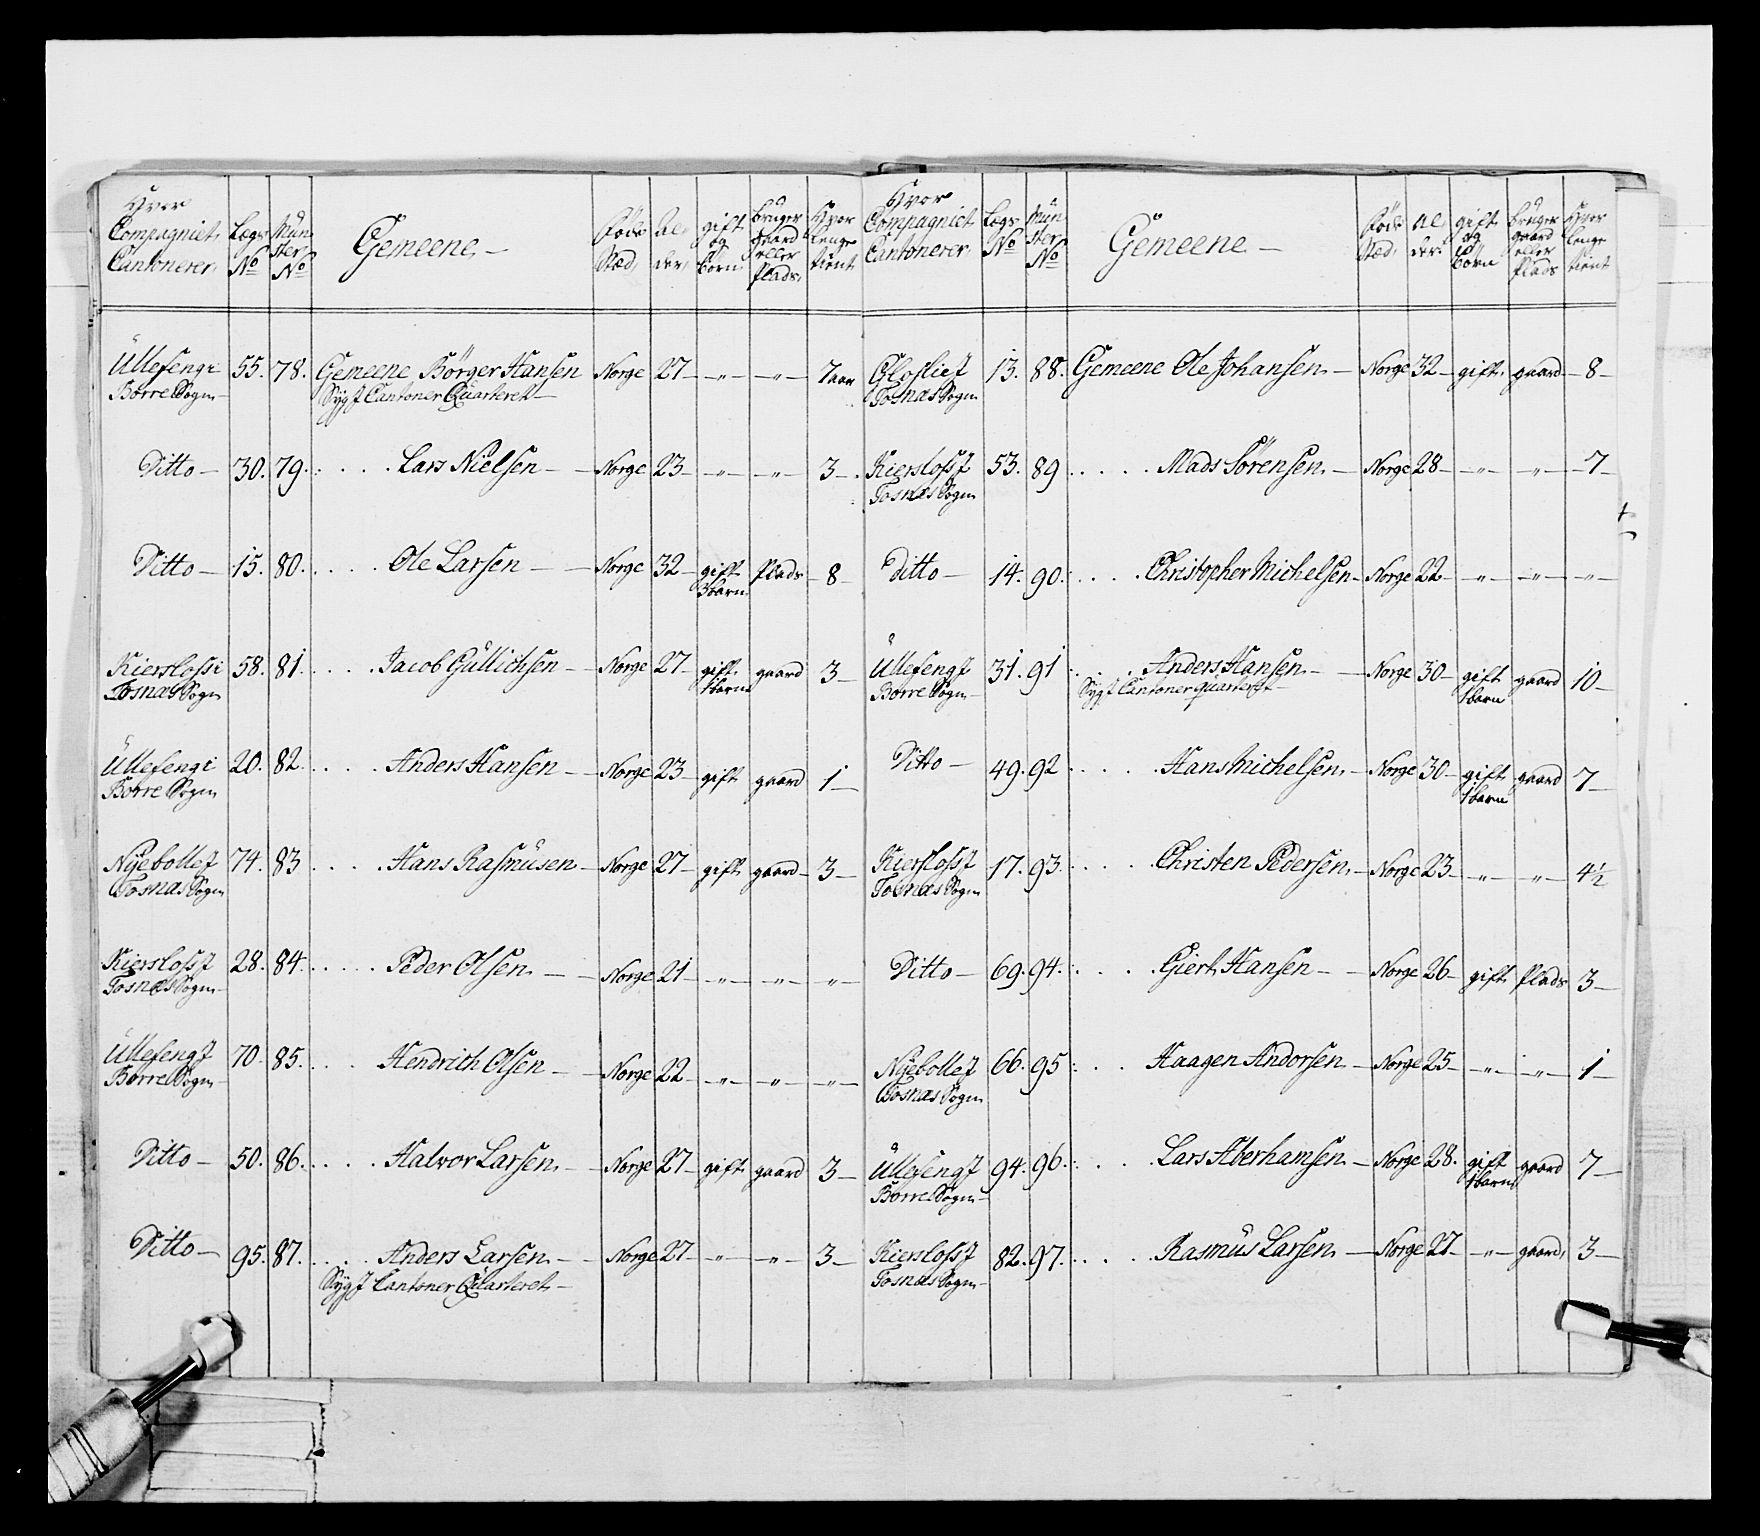 Hvor Compagniet Cantonerer, Lægs No Mün ster No Gemeene, Föde Stæd, Al der, gift og Börn bruger gaard eller Plads, Hvor lenge tient
Üllefengi Borre Sogn 55. 78. Gemeene Börger Hansen Norge 27 — „ — „ — 7 aar
Sygt Cantoner Qüarteret
Ditto — 30. 79. Lars Nielsen — Norge 23 — „ — „ — 3 —
Ditto — 15. 80. Ole Larsen — Norge 32 — gift 3 barn Plads 8 —
Kierslossi Tosnæs Sogn 58. 81. Jacob Güllichsen — Norge 27 gift 1 barn gaard 3 —
Üllefengi Borre Sogn 20. 82. Anders Hansen — Norge 23 gift gaard 1 —
Nyebollet Tosnæs Sogn 74. 83 Hans Rasmüsen — Norge 27 — gift gaard — 3 —
Kierslosst Tosnæs Sogn 28. 84. Peder Olsen. — Norge 21 — „ — „ — „ —
Üllefengt Borre Sogn 70. 85. Hendrich Olsen — Norge 22 — „ — „ — „ —
Ditto — 50. 86. Halvor Larsen — Norge 27 — gift gaard 3 —
Ditto — 95. 87. Anders Larsen — Norge 27 — „ — „ — 3 —
Sygt Cantoner Qüarteret —
Hvor Compagniet Cantonerer, Lægs No Mün ster No Gemeene — Föde Stæd, Al der. gift og Börn bruger gaard eller Plads Hvor lenge tient
Tosnæs Sogn 13. 88. Gemeene Ole Johansen — Norge 32 — gift gaard — 8 —
Kierslosst Tosnæs Sogn 53. 89 Mads Sörensen — Norge 28 — „ — „ — 7
Ditto — 14. 90. Christopher Michelsen — Norge 22 — „ — „ — „ —
Üllefengt Borre Sogn 31. 91 Anders Hansen — Norge 30 — gift 1 barn gaard 10 —
Sygt Cantoner Qüarteret
Ditto — 49. 92 Hans Michelsen — Norge 30 — gift 1 barn gaard 7 —
Kierslosst Tosnæs Sogn 17. 93. Christen Pedersen — Norge 23 — „ — „ — 4½
Ditto — 69. 94. Giert Hansen — Norge 26 — gift Plads 3 —
Nyebollet Tosnæs Sogn 66. 95 Haagen Andorsen — Norge 25 — „ — „ — 1 —
Üllefengt Borre Sogn — 94. 96. Lars Aberhamsen — Norge 28. gift 1 barn gaard 7 —
Kierslosst Tosnæs Sogn — 82. 97. Rasmüs Larsen — Norge 27 — „ — gaard, 3 —